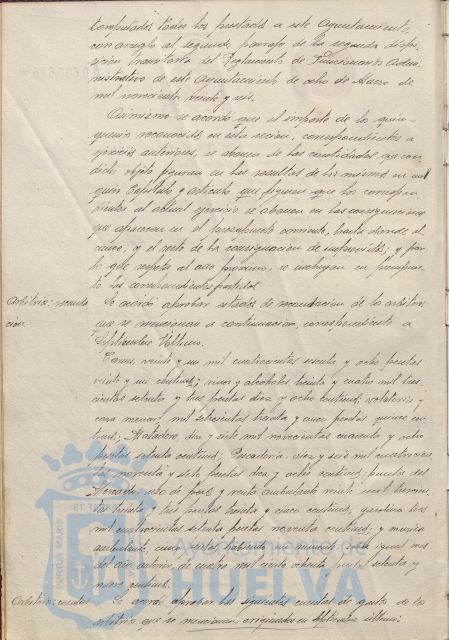 computados todos los prestados a este Ayuntamiento,
con arreglo al segundo párrafo de la segunda dispo-
sición transitoria del Reglamento de Funcionarios Admi-
nistrativos de este Ayuntamiento de ocho de Marzo de
mil novecientos veinte y seis.
Asimismo se acordó que el importe de los quin-
quenios reconocidos en esta sesión, correspondientes a
ejercicios anteriores, se abonen de las cantidades que con
dicho objeto figuran en las resultas de los mismos en
Capítulo y artículo que figuren que los correspon-
dientes al actual ejercicio se abonen en las consignaciones
que aparecen en el presupuesto corriente, hasta donde al-
cance, y el resto de la consignación de imprevistos; y por
lo que respecta al año próximo, se incluyan en presupues-
to las correspondientes partidas
Arbitrios: recauda
ción.
Se acordó aprobar estados de recaudación de los arbitrios
que se mencionan a continuación, correspondiente a
Septiembre último.
Carnes, veinte y un mil cuatrocientas sesenta y ocho pesetas
veinte y un céntimos; vinos y alcoholes treinta y cuatro mil tres-
cientas setenta y tres pesetas diez y ocho céntimos; volatería y
caza menor, mil setecientas treinta y cinco pesetas quince cén-
timos; Matadero, diez y siete mil novecientas cuarenta y ocho
pesetas setenta céntimos; Pescadería, diez y seis mil
noventa y siete pesetas diez y ocho céntimos; puestos del
Mercado, y venta ambulante veinte mil trescien-
tas treinta y tres pesetas treinta y cinco céntimos; gasolina tres
mil cuatrocientas setenta pesetas noventa céntimos; y música
ambulante, cinco pesetas en igual mes
del año anterior de cuatro mil ciento ochenta pesetas setenta y
nueve céntimos.
Arbitrios: cuentas
Se acordó aprobar las siguientes cuentas de gastos de los
arbitrios que se mencionan originados en Septiembre último:
PORTUS MARIS ET TERRAE
Ayuntamiento de
HUELVA